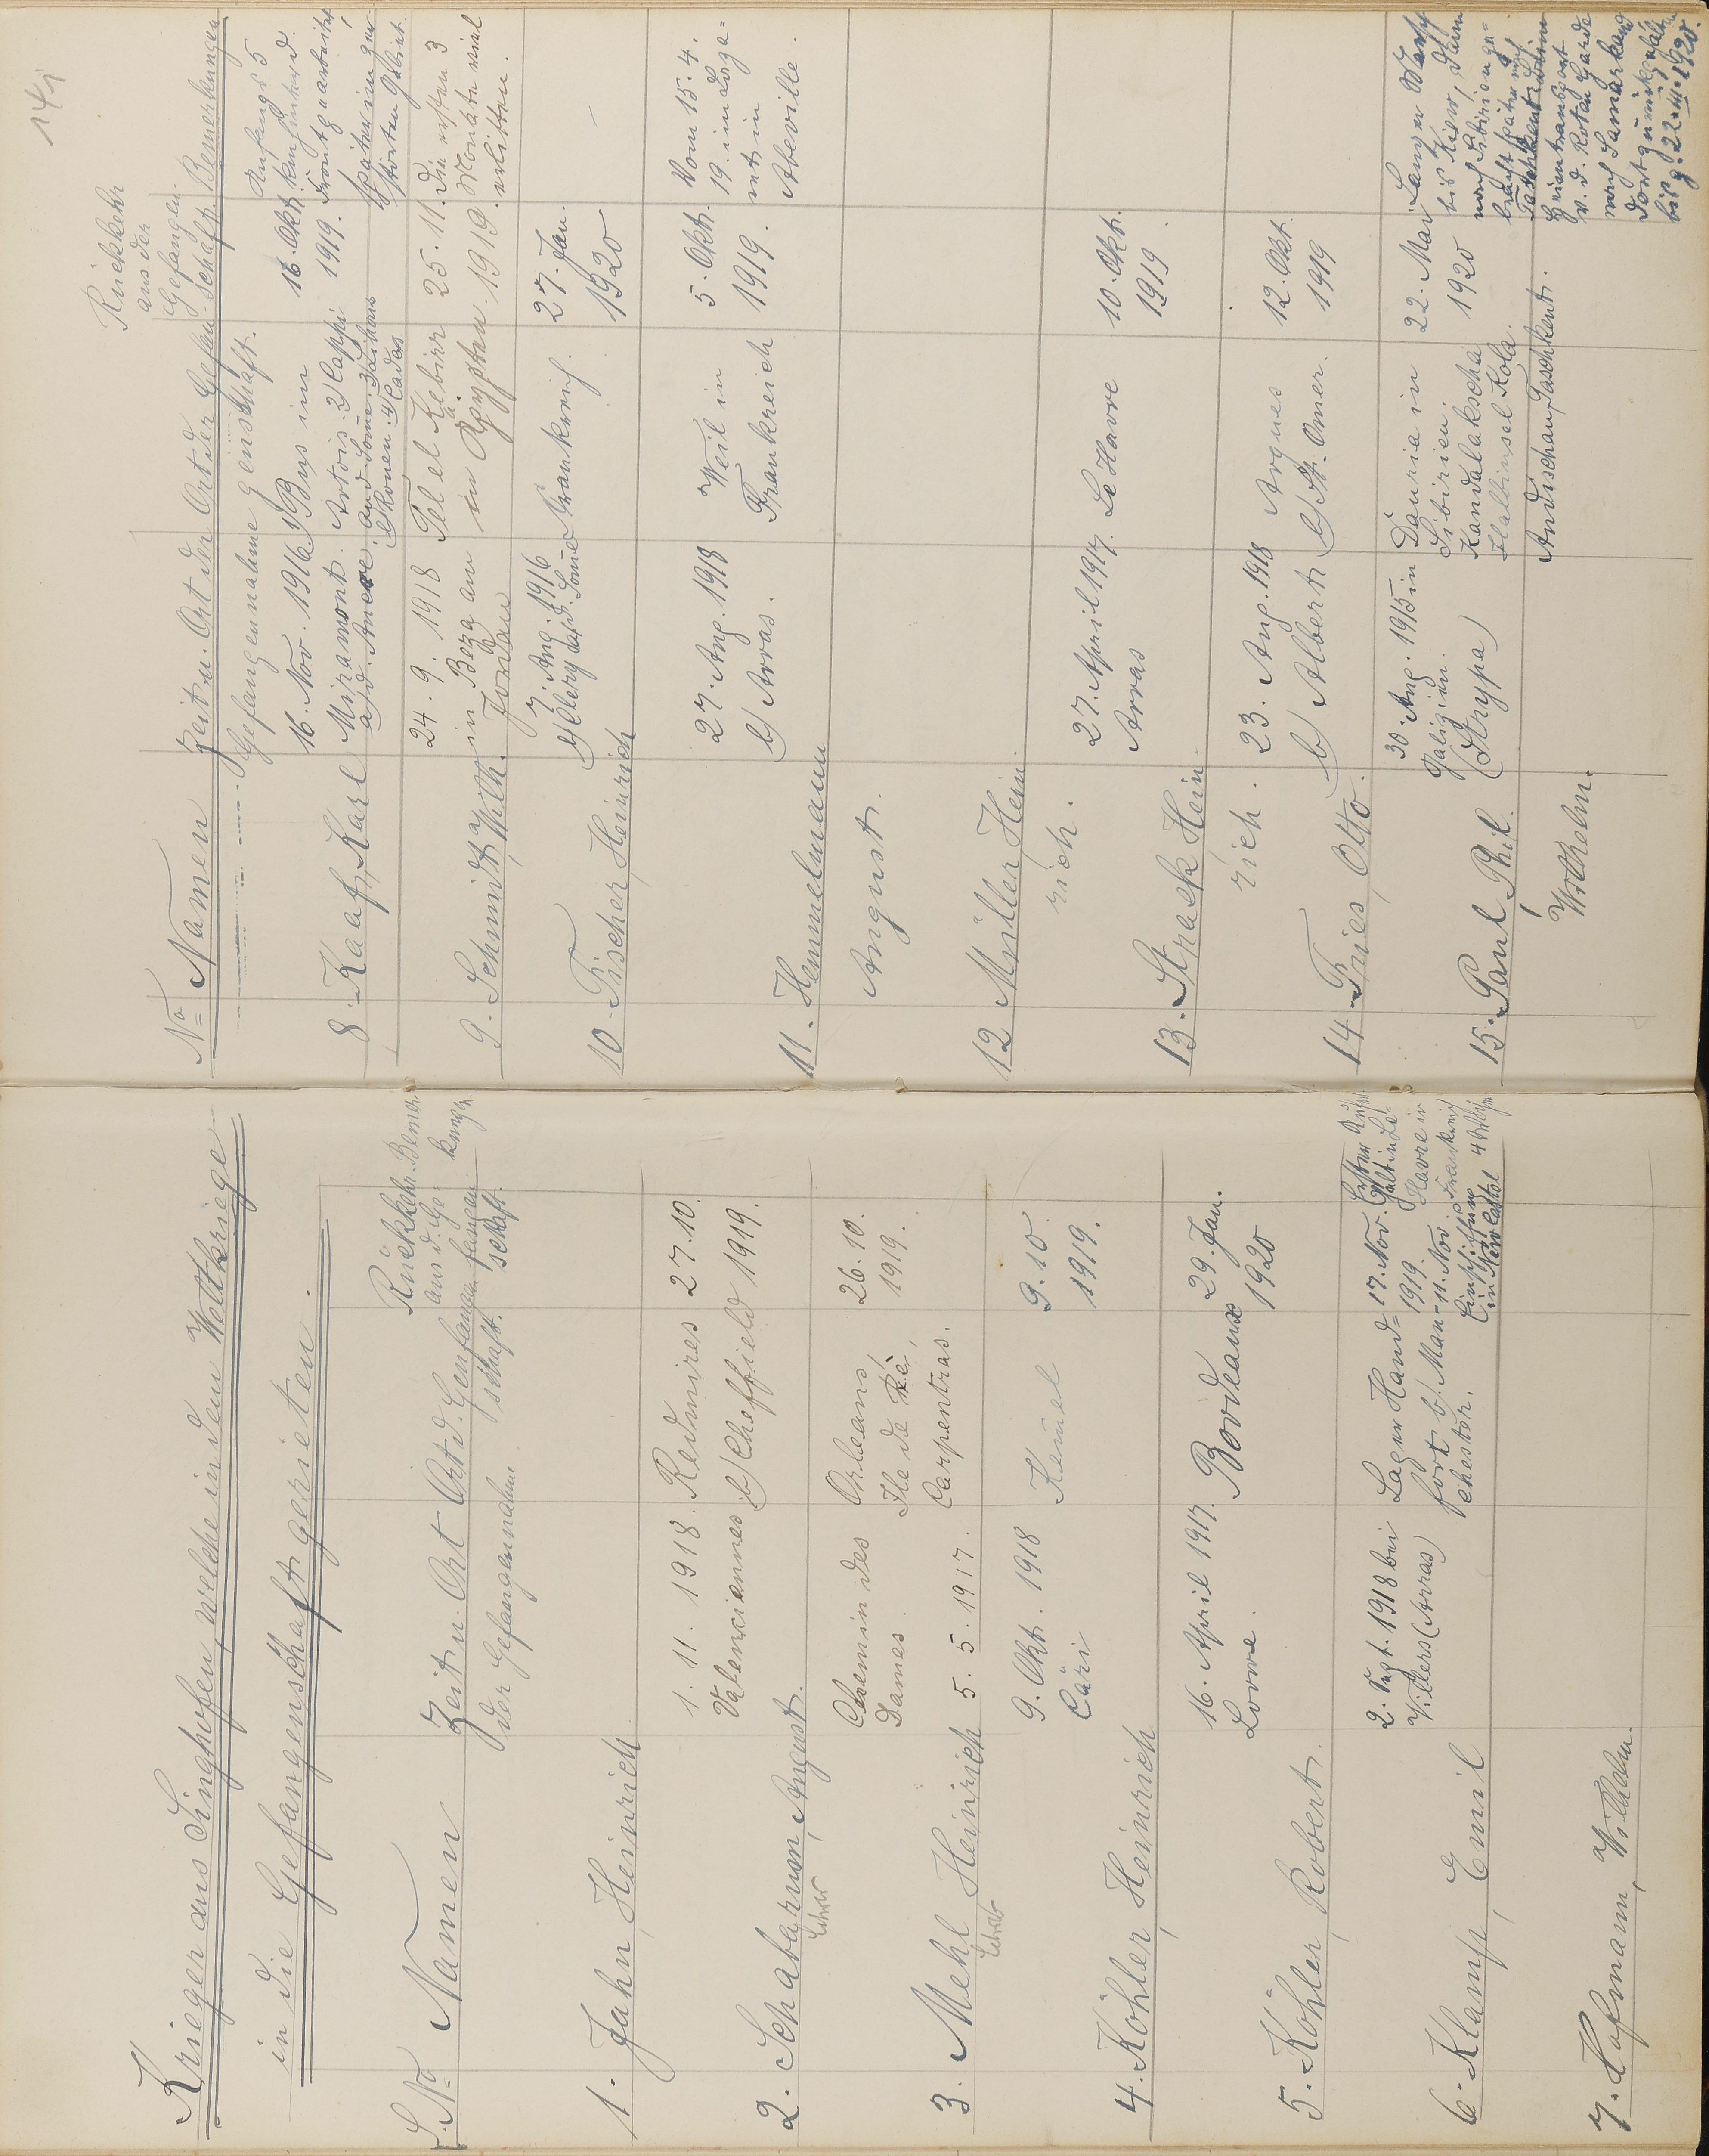 Krieger aus Singhofen, welche in dem Weltkriege
in die Gefangenschaft gerieten.
L. No Namen Zeit u. Ort der Gefangennahme Ort d. Gefangenschaft. Rückkehr aus d. Gefangenschaft. Bemerkungen
1. Jahn, Heinrich
1. 11. 1918. Redmires 27. 10.
Valenciennes b/ Sheffield 1919.
2. Schabarum, August.
Lehrer
Chemin des Orleans, 26. 10.
Dames. Ile de Ré, 1919.
5. 5. 1917. Carpentras.
3. Mehl Heinrich
Lehrer
9. Okt. 1918 9. 10.
1919.
4. Köhler, Heinrich
16. April 1917. Bordeaux 29. Jan.
1920
5. Köhler, Robert.
2. Sept. 1918 bei Lager Hand- 17. Nov.
Villers (Arras) fort b/ Man- 1919.
chestor. 11. Nov.
Einschiffung
in New Castel
Havre in
Frankreich
6. Klamp, Emil
7. Hofmann, Wilhelm.
14
No Namen Zeit u. Ort der Gefangennahme Ort der Gefangenschaft. Rückkehr aus der Gefangenschaft. Bemerkungen
16. Nov. 1916 1) Bus im 16. Okt. Anfangs 5
Miramont Artois 2) Cappi 1919. Front gearbeitet,
a/d. Ancre.
später im
8. Kaaf, Karl
24. 9. 1918 Tel el Kebirr 25. 11. Die ersten 3
in am in Ägypten. 1919. Monate viel
Jordan erlitten.
9. Schmidt, Wilh.
7. Aug. 1916 Frankreich. 27. Jan.
b/ Clery a/d. Some 1920
10. Fischer, Heinrich
27. Aug. 1918 Weil in 5. Okt. Vom 15. 4.
b/ Arras. Frankreich 1919. 19. im Laza-
rett in
Abeville.
11. Hemmelmann
August.
12 Müller, Hein
rich.
27. April 1917. Le Havre 10. Okt.
Arras 1919.
13. Strack Hein
rich.
23. Aug. 1918 Arques 12. Okt.
b/ Albert b/ St. Omer. 1919
14. Fries, Otto.
30. Aug. 1915 in Dauria in 22. Mai
Galizien. Sibirien. 1920
(Strypa) Kandalakscha
Halbinsel Kola.
Andischan, Taschkent.
bis Kiew, dann
nach Sibirien ge-
v. d. Roten Garde
nach Samarkand
bis z. 22. III. 1920.
15. Paul, Phil.
Wilhelm.